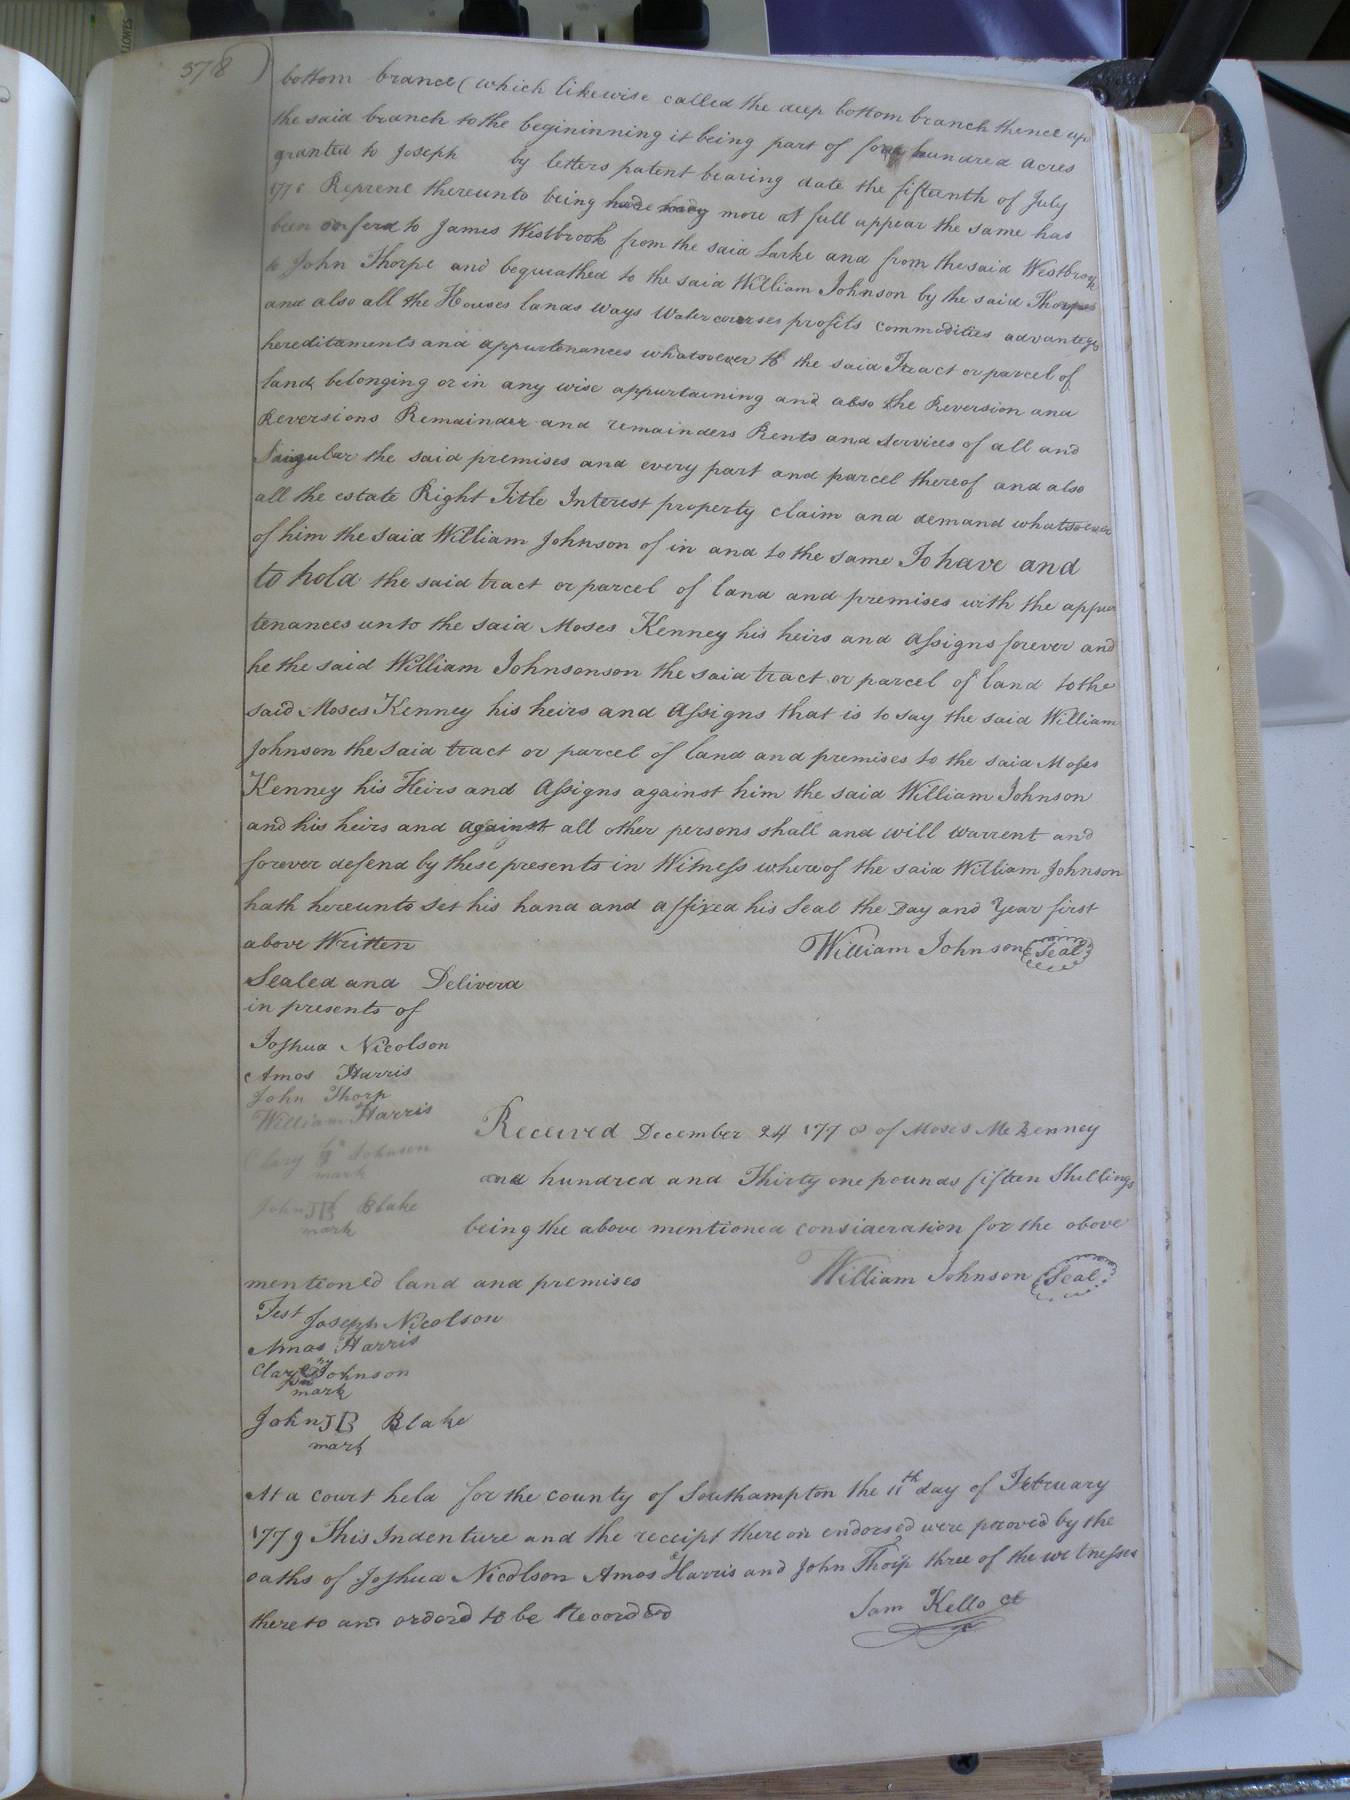 378
bottom branch (which likewise called the deep bottom branch thence up
the said branch to the begininning it being part of four hundred acres
granted to Joseph by letters patent bearing date the fifteenth of July
Reprene thereunto being hade more at full appear the same has
been to James Westbrook from the said Larke and from the said Westbrook
to John Thorpe and bequeathed to the said William Johnson by the said Thorpe
and also all the Houses lands ways Water courses profits commodities advanteges
hereditaments and appurtenances whatsoever to the said Tract or parcel of
land belonging or in any wise appurtaining and also the Reversion and
Reversions Remainder and remainders Rents and services of all and
Saigular the said premises and every part and parcel thereof and also
all the estate Right Title Interest property claim and demand whatsoever
of him the said William Johnson of in and to the same To have and
to hold the said tract or parcel of land and premises with the appur
tenances unto the said Moses Kenney his heirs and Assigns forever and
he the said William Johnsonson the said tract or parcel of land to the
said Moses Kenney his heirs and Assigns that is to say the said William
Johnson the said tract or parcel of land and premises to the said Moses
Kenney his Heirs and Assigns against him the said William Johnson
and his heirs and against all other persons shall and will warrent and
forever defend by these presents in Witness whereof the said William Johnson
hath hereunto set his hand and affixed his Seal the Day and Year first
above Written William Johnson (Seal)
Sealed and Deliverd
in presents of
Joshua Nicolson
Amos Harris
John Thorp
William Harris
Clary Johnson
mark
John JB Blake
mark
Received December 24 1778 of Moses McKenney
and hundred and Thirty one pounds fifteen Shillings
being the above mentioned consideration for the above
mentioned land and premises William Johnson (Seal)
Test Joseph Nicolson
Amos Harris
Clary Johnson
mark
John JB Blake
mark
At a court held for the county of Southampton the 11th day of February
1779 This Indenture and the receipt thereon endorsed were proved by the
oaths of Joshua Nicolson Amos Harris and John Thorp three of the witnesses
thereto and orderd to be Recorded Sam Kello Cl